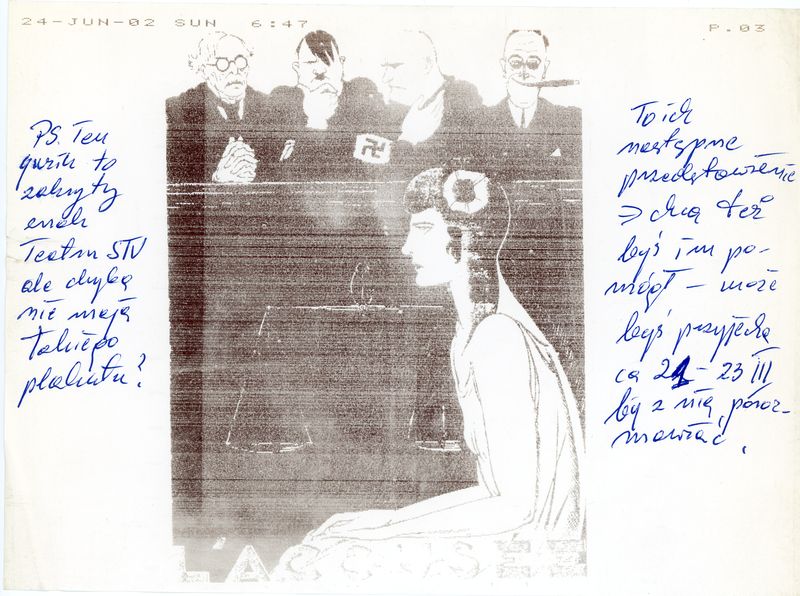 24-JUN-02 SUN 6:47
P.03
PS. Ten
to
zakryty
znak
Teatru STU
ale chyba
nie mają
takiego
plakatu?
To ich
następne
przedstawienie
→ chcą też
byś im po-
mógł – może
byś przyjechał
ca 21 – 23 III
by z nią poroz-
mawiać.
L'ACCUSÉE